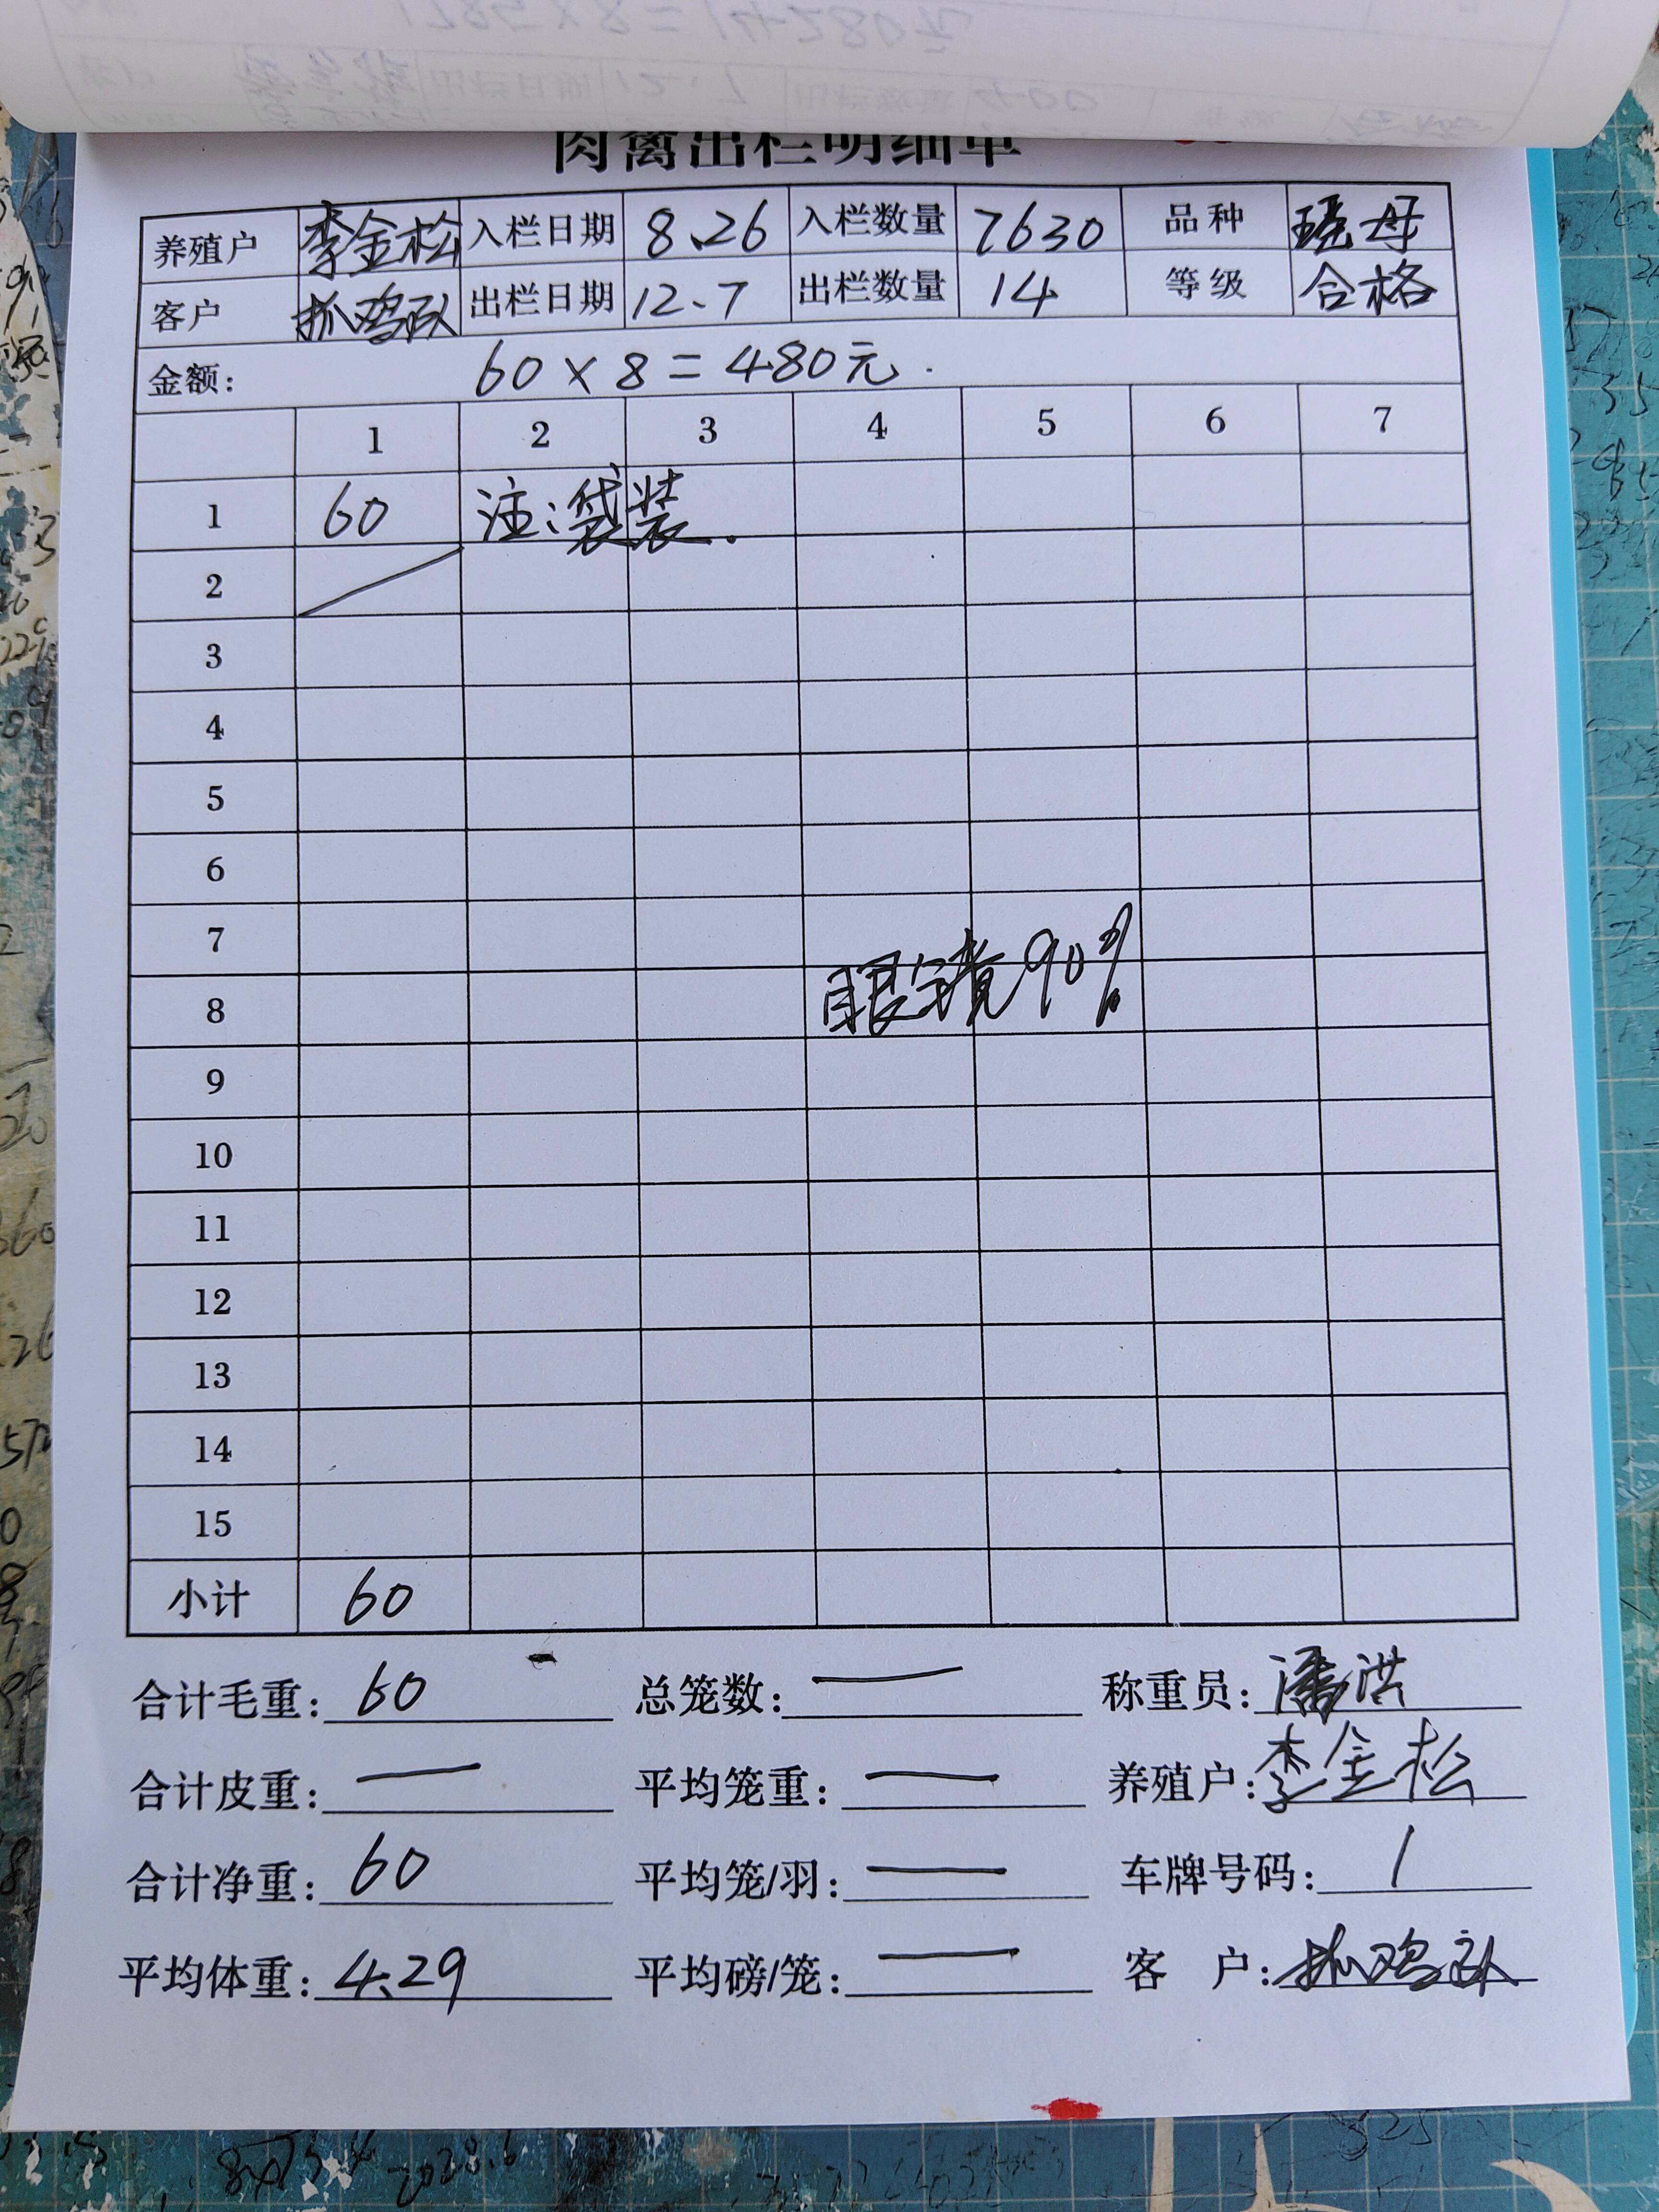 肉禽出栏明细单
养殖户 李金松 入栏日期 8.26 入栏数量 7630 品种 瑶母
客户 抓鸡队 出栏日期 12.7 出栏数量 14 等级 合格
金额: 60×8=480元.
1 2 3 4 5 6 7
1 60 注:袋装.
2
3
4
5
6
7
8 眼镜90%
9
10
11
12
13
14
15
小计 60
合计毛重: 60 总笼数: — 称重员: 潘洪
合计皮重: — 平均笼重: — 养殖户: 李金松
合计净重: 60 平均笼/羽: — 车牌号码: /
平均体重: 4.29 平均磅/笼: — 客 户: 抓鸡队